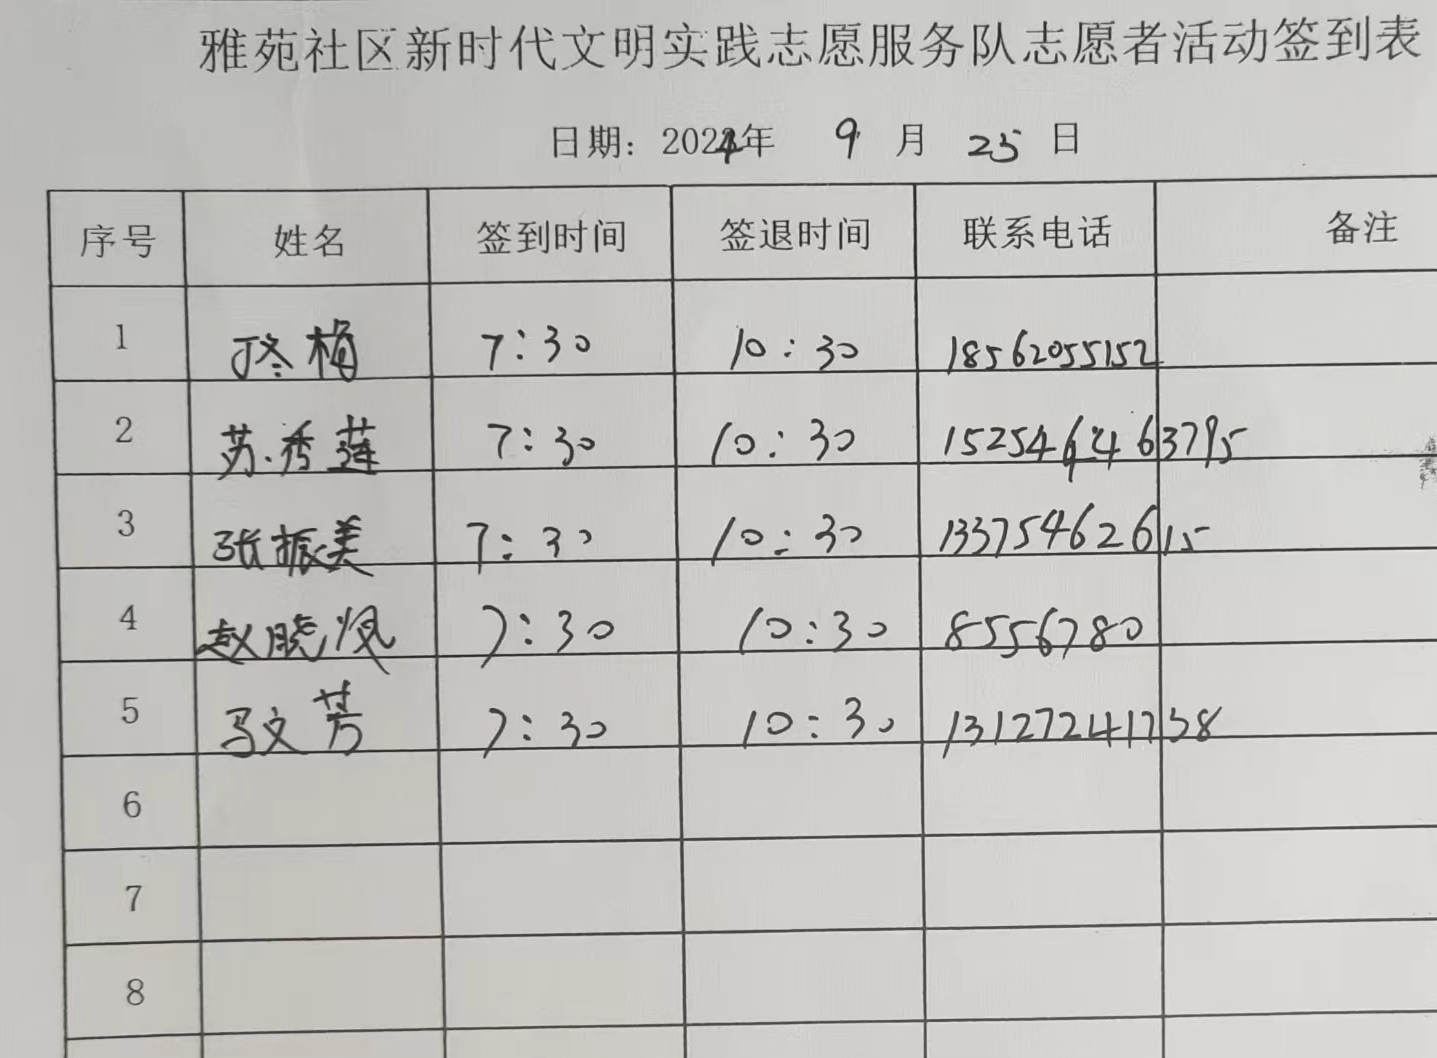 雅苑社区新时代文明实践志愿服务队志愿者活动签到表
日期：2024年 9 月 25 日
序号 姓名 签到时间 签退时间 联系电话 备注
1 丁冬梅 7:30 10:30 18562055152
2 苏秀莲 7:30 10:30
3 张振美 7:30 10:30 13375462615
4 赵晓凤 7:30 10:30 8556780
5 马文芳 7:30 10:30 13127241738
6
7
8